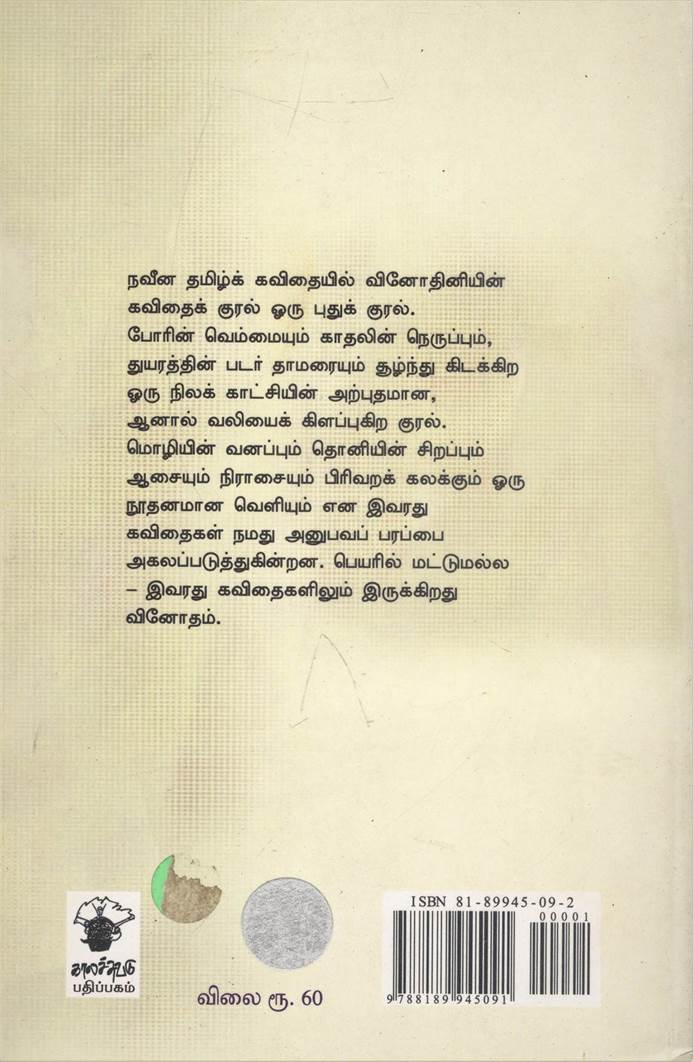 நவீன தமிழ்க் கவிதையில் வினோதினியின்
கவிதைக் குரல் ஒரு புதுக் குரல்.
போரின் வெம்மையும் காதலின் நெருப்பும்,
துயரத்தின் படர் தாமரையும் சூழ்ந்து கிடக்கிற
ஒரு நிலக் காட்சியின் அற்புதமான,
ஆனால் வலியைக் கிளப்புகிற குரல்.
மொழியின் வனப்பும் தொனியின் சிறப்பும்
ஆசையும் நிராசையும் பிரிவறக் கலக்கும் ஒரு
நூதனமான வெளியும் என இவரது
கவிதைகள் நமது அனுபவப் பரப்பை
அகலப்படுத்துகின்றன. பெயரில் மட்டுமல்ல
– இவரது கவிதைகளிலும் இருக்கிறது
வினோதம்.
காலச்சுவடு
பதிப்பகம்
விலை ரூ. 60
ISBN 81-89945-09-2
00001
9 788189 945091